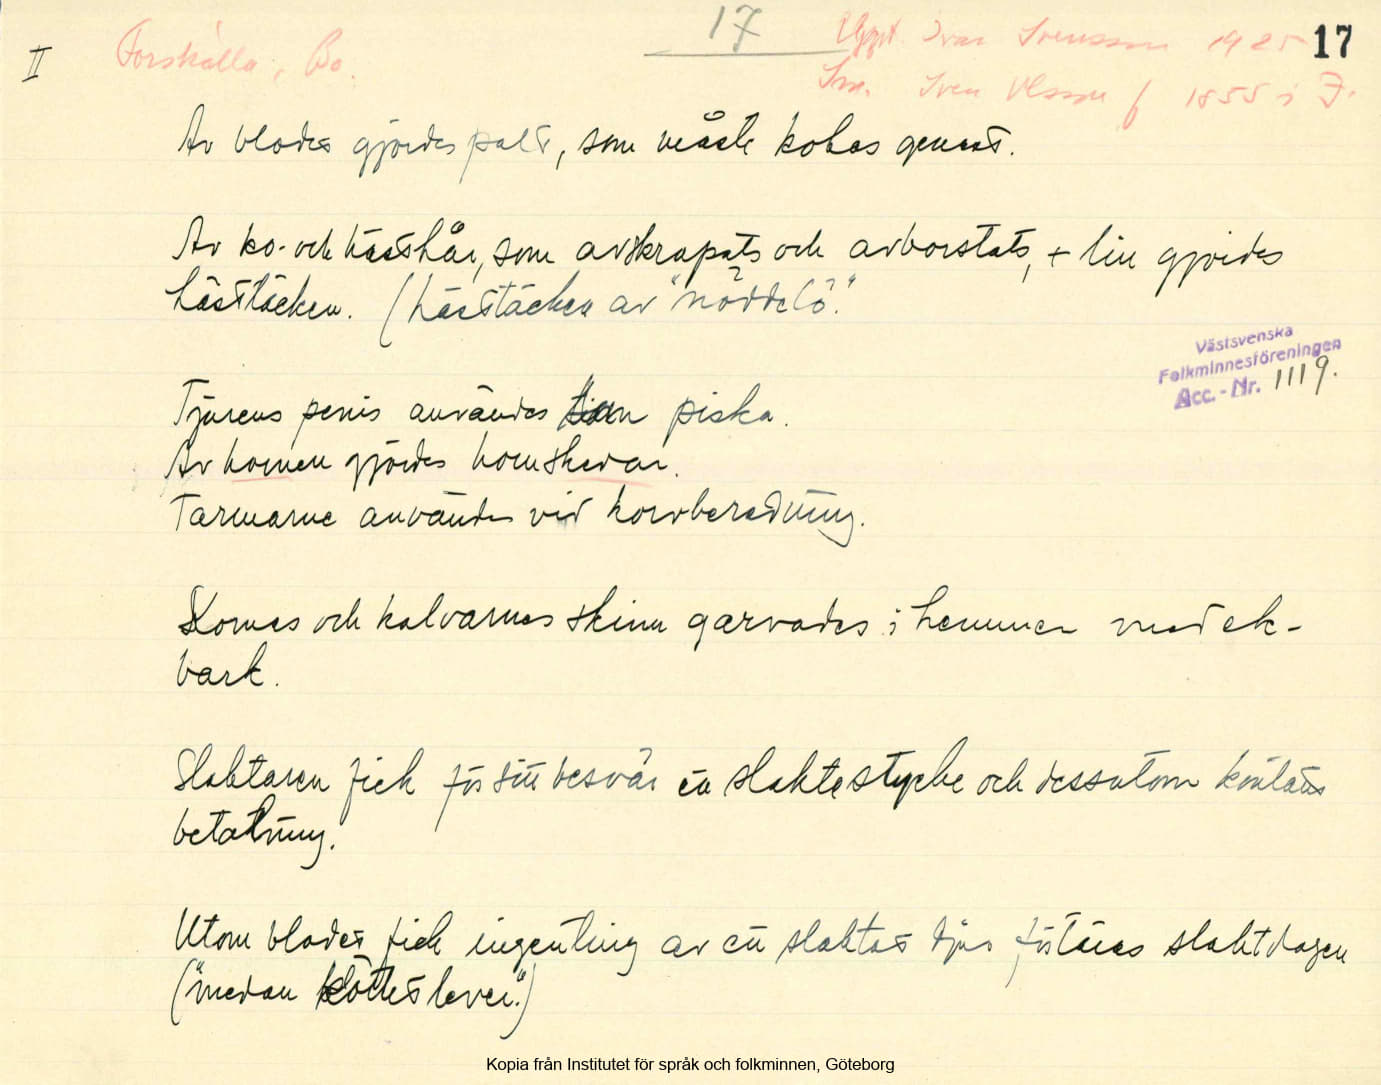 17
Uppt. Ivar Svensson 1925 17
II Forshälla, Bo.
Sag. Sven Olsson f 1855 i F.
Av blodet gjordes palt, som måste kokas genast.
Av ko- och hästhår, som avskrapats och avborstats, + lin gjordes
hästtäcken. (hästtäcken av "nöddelö".
Västsvenska
Folkminnesföreningen
Acc.-Nr. 1119.
Tjurens penis användes som piska.
Av hornen gjordes hornskedar.
Tarmarne användes vid korvberedning.
Kornas och kalvarnas skinn garvades i hemmen med ek-
bark.
Slaktaren fick för sitt besvär en slaktestycke och dessutom kontant
betalning.
Utom blodet fick ingenting av en slaktat djur förtäras slaktdagen
("medan köttet lever".)
Kopia från Institutet för språk och folkminnen, Göteborg